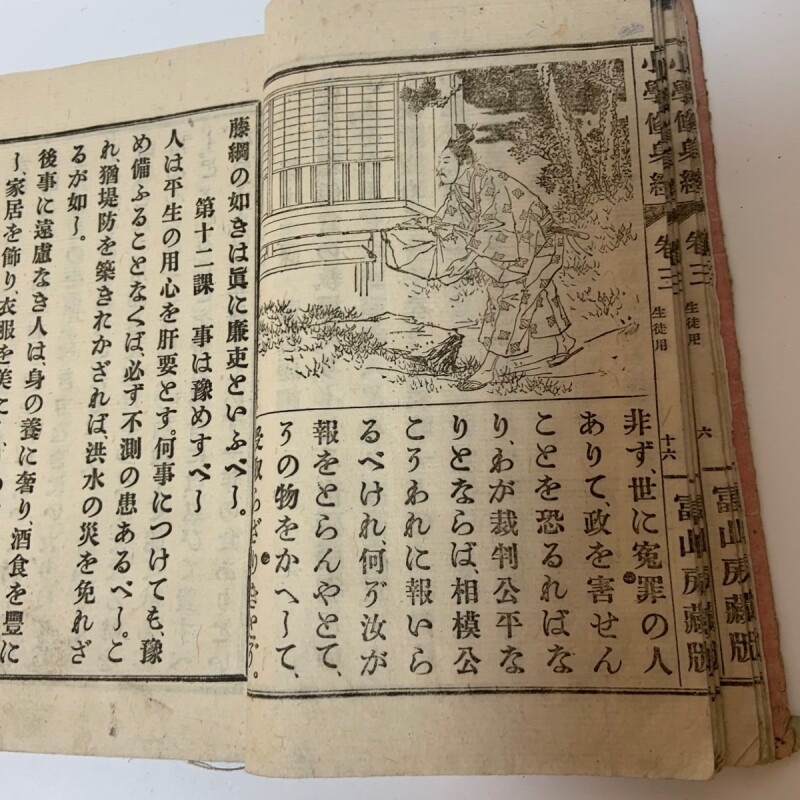 小學修身經 卷三 生徒用 六 冨山房藏版
小學修身經 卷三 生徒用 十六 冨山房藏版
非ず、世に寃罪の人
ありて、政を害せん
ことを恐るればな
り、わが裁判公平な
りとならば、相模公
こそわれに報いら
るべけれ、何ぞ汝が
報をとらんやとて、
その物をかへして、
受取らざりきとぞ。
藤綱の如きは眞に廉吏といふべし。
第十二課 事は豫めすべし
人は平生の用心を肝要とす。何事につけても、豫
め備ふることなくば、必ず不測の患あるべし。こ
れ、猶堤防を築きおかざれば、洪水の災を免れざ
るが如し。
後事に遠慮なき人は、身の養に奢り、酒食を豐に
し、家居を飾り、衣服を美に